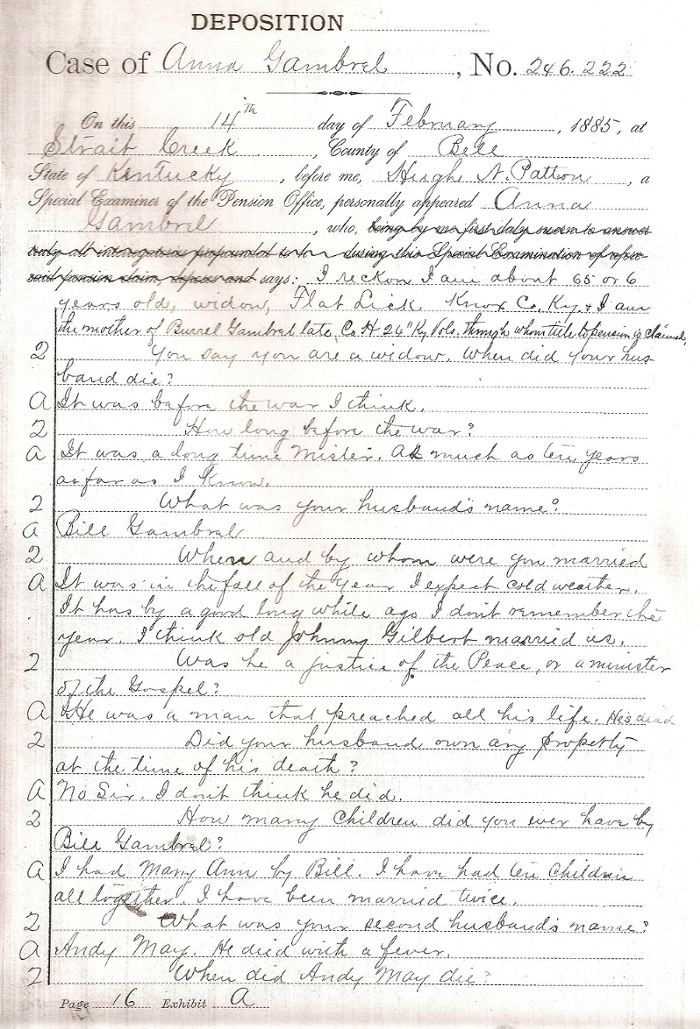 DEPOSITION
Case of Anna Gambrel, No. 246.222
On this 14th day of February, 1885, at
Strait Creek, County of Bell
State of Kentucky, before me, Hughe N. Patton, a
Special Examiner of the Pension Office, personally appeared Anna
Gambrel, who, being by me first duly sworn to answer
truly all interrogatories propounded to her during this Special Examination of afore-
said pension claim, deposes and says: I reckon I am about 65 or 6
years old, widow, Flat Lick Knox Co. Ky. & I am
the mother of Burrel Gambrel late Co. H. 26" Ky Vols. through whom title to pension is claimed,
2 You say you are a widow. When did your hus-
band die?
A It was before the war I think.
2 How long before the war?
a It was a long time Mister. As much as ten years
as far as I know.
2 What was your husband's name?
a Bill Gambrel
2 When and by whom were you married
a It was in the fall of the year I expect cold weather.
It has by a good long while ago I don't remember the
year. I think old Johnny Gilbert married us.
2 Was he a justice of the Peace, or a minister
of the Gospel?
a He was a man that preached all his life. He's dead
2 Did your husband own any property
at the time of his death?
a No Sir. I don't think he did.
2 How many Children did you ever have by
Bill Gambrel?
a I had Mary Ann by Bill. I have had ten Children
all together. I have been married twice.
2 What was your second husband's name?
a Andy May. He died with a fever.
2 When did Andy May die?
Page 16 Exhibit A